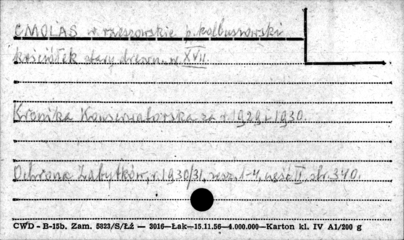 CMOLAS w rzeszowskie p. kolbuszowski
kościółek stary drewn. w. XVII.
Kronika Konserwatorska za r. 1929 i 1930.
Ochrona Zabytków, r. 1930/31, zesz. 1-4, część II, str. 340.
CWD - B-15b. Zam. 5323/S/Łź — 3016—Łak—15.11.56—4.000.000—Karton kl. IV A1/200 g